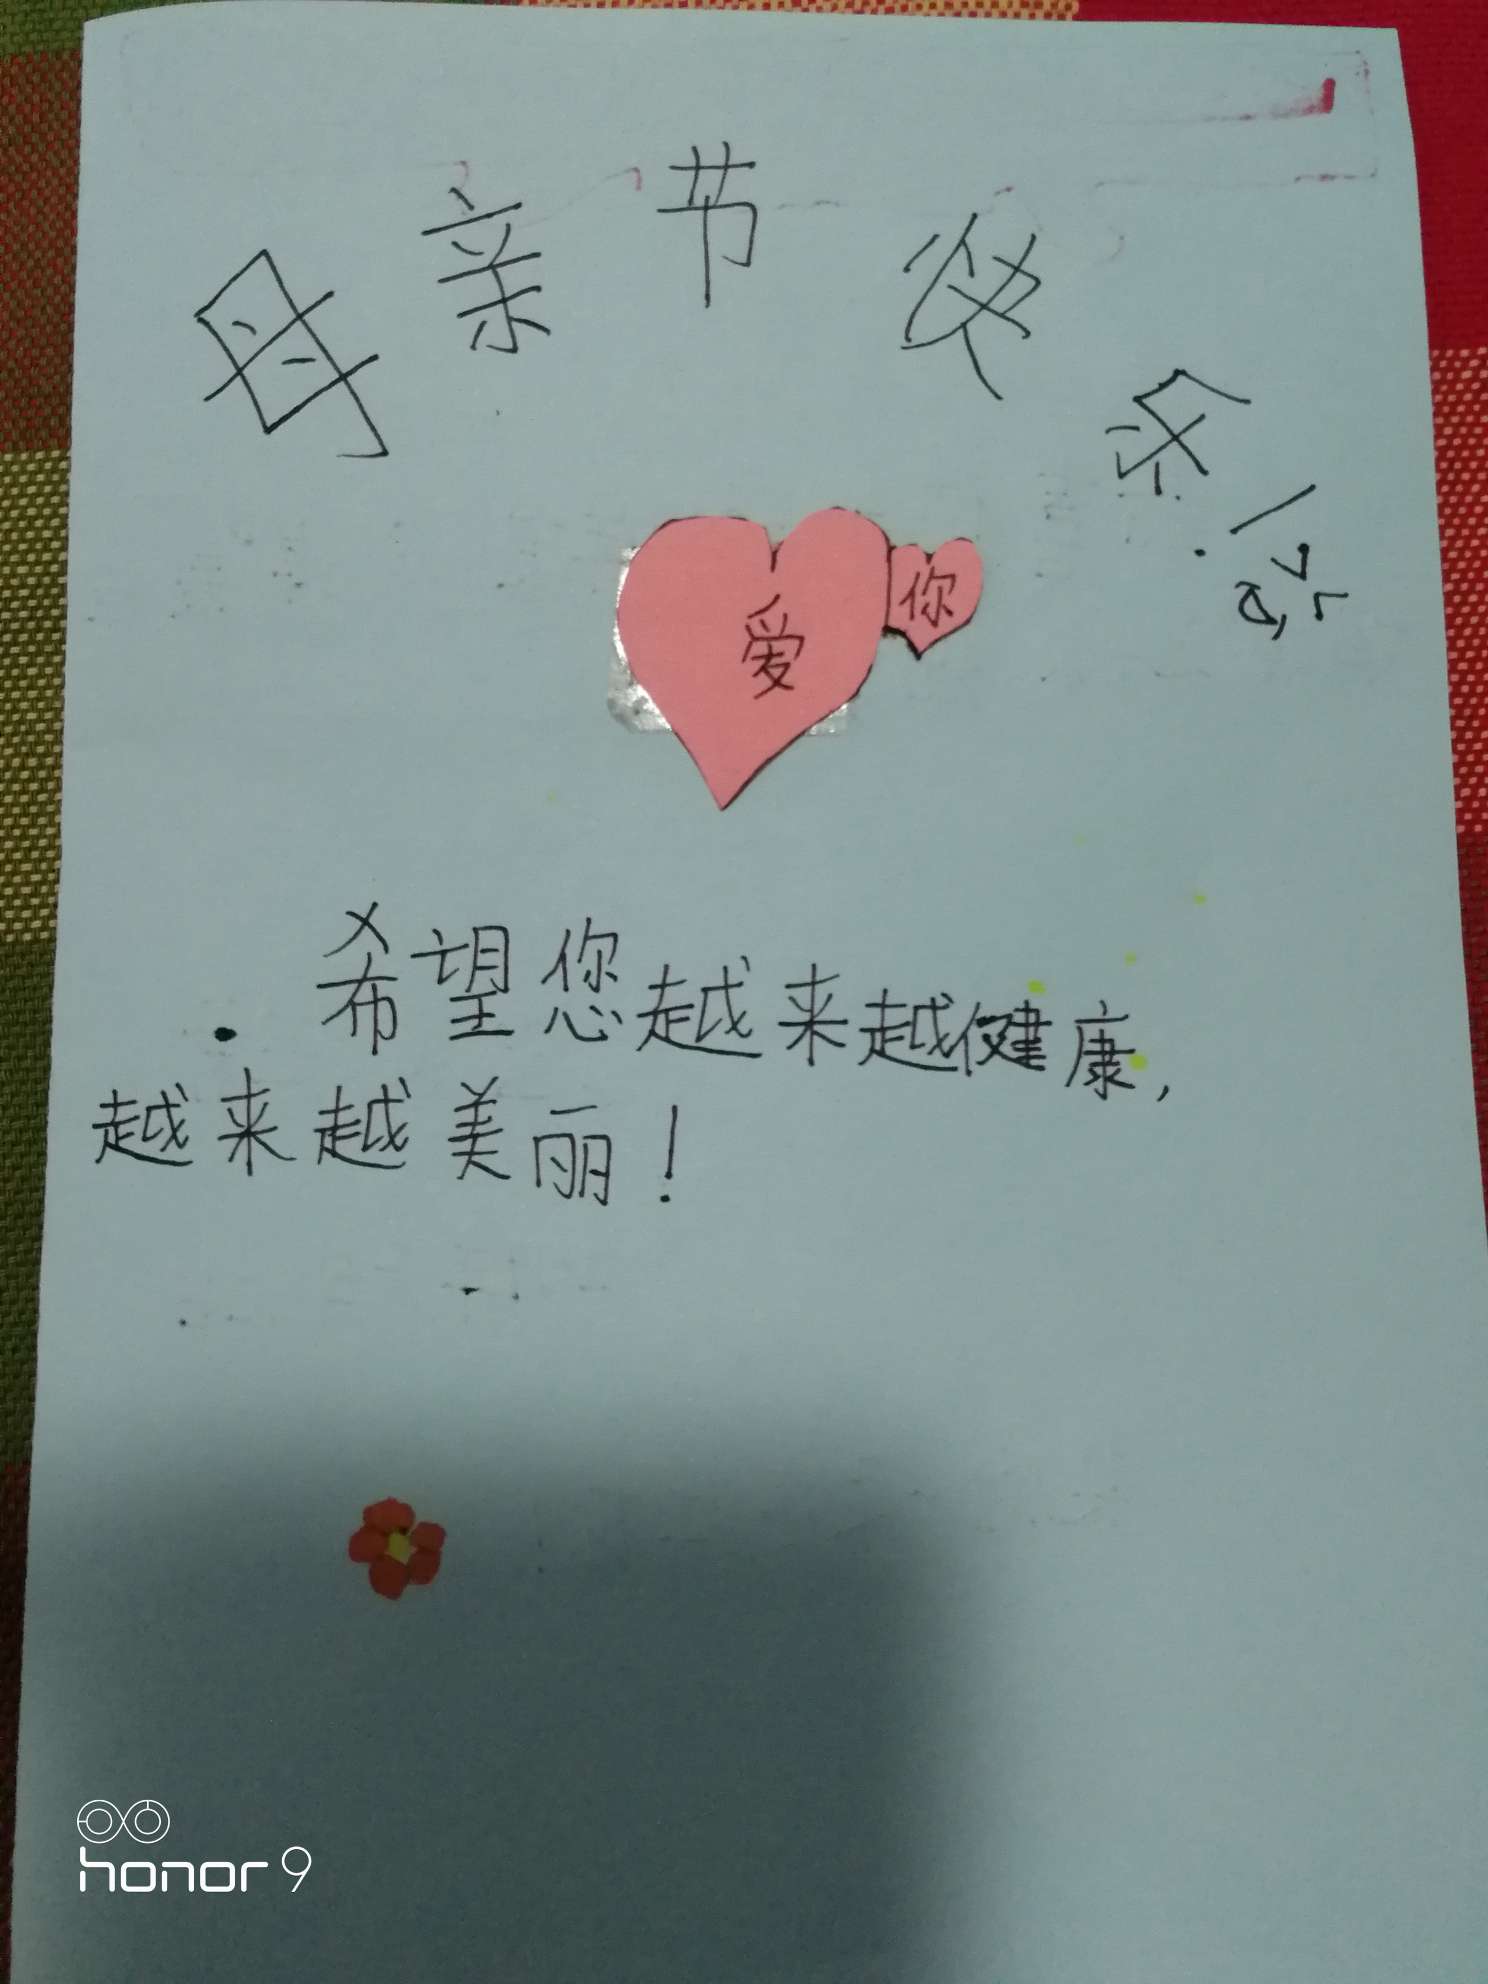 母亲节快乐!
爱你
希望您越来越健康,
越来越美丽!
honor 9